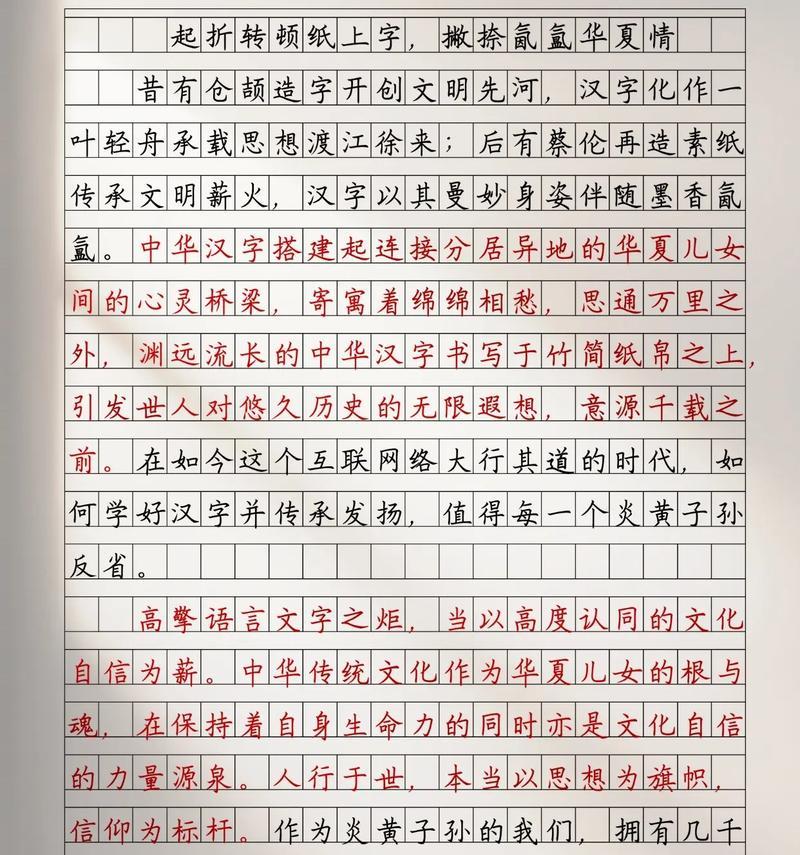 起折转顿纸上字，撇捺氤氲华夏情
昔有仓颉造字开创文明先河，汉字化作一
叶轻舟承载思想渡江徐来；后有蔡伦再造素纸
传承文明薪火，汉字以其曼妙身姿伴随墨香氤
氲。中华汉字搭建起连接分居异地的华夏儿女
间的心灵桥梁，寄寓着绵绵相愁，思通万里之
外，渊远流长的中华汉字书写于竹简纸帛之上，
引发世人对悠久历史的无限遐想，意源千载之
前。在如今这个互联网络大行其道的时代，如
何学好汉字并传承发扬，值得每一个炎黄子孙
反省。
高擎语言文字之炬，当以高度认同的文化
自信为薪。中华传统文化作为华夏儿女的根与
魂，在保持着自身生命力的同时亦是文化自信
的力量源泉。人行于世，本当以思想为旗帜，
信仰为标杆。作为炎黄子孙的我们，拥有几千